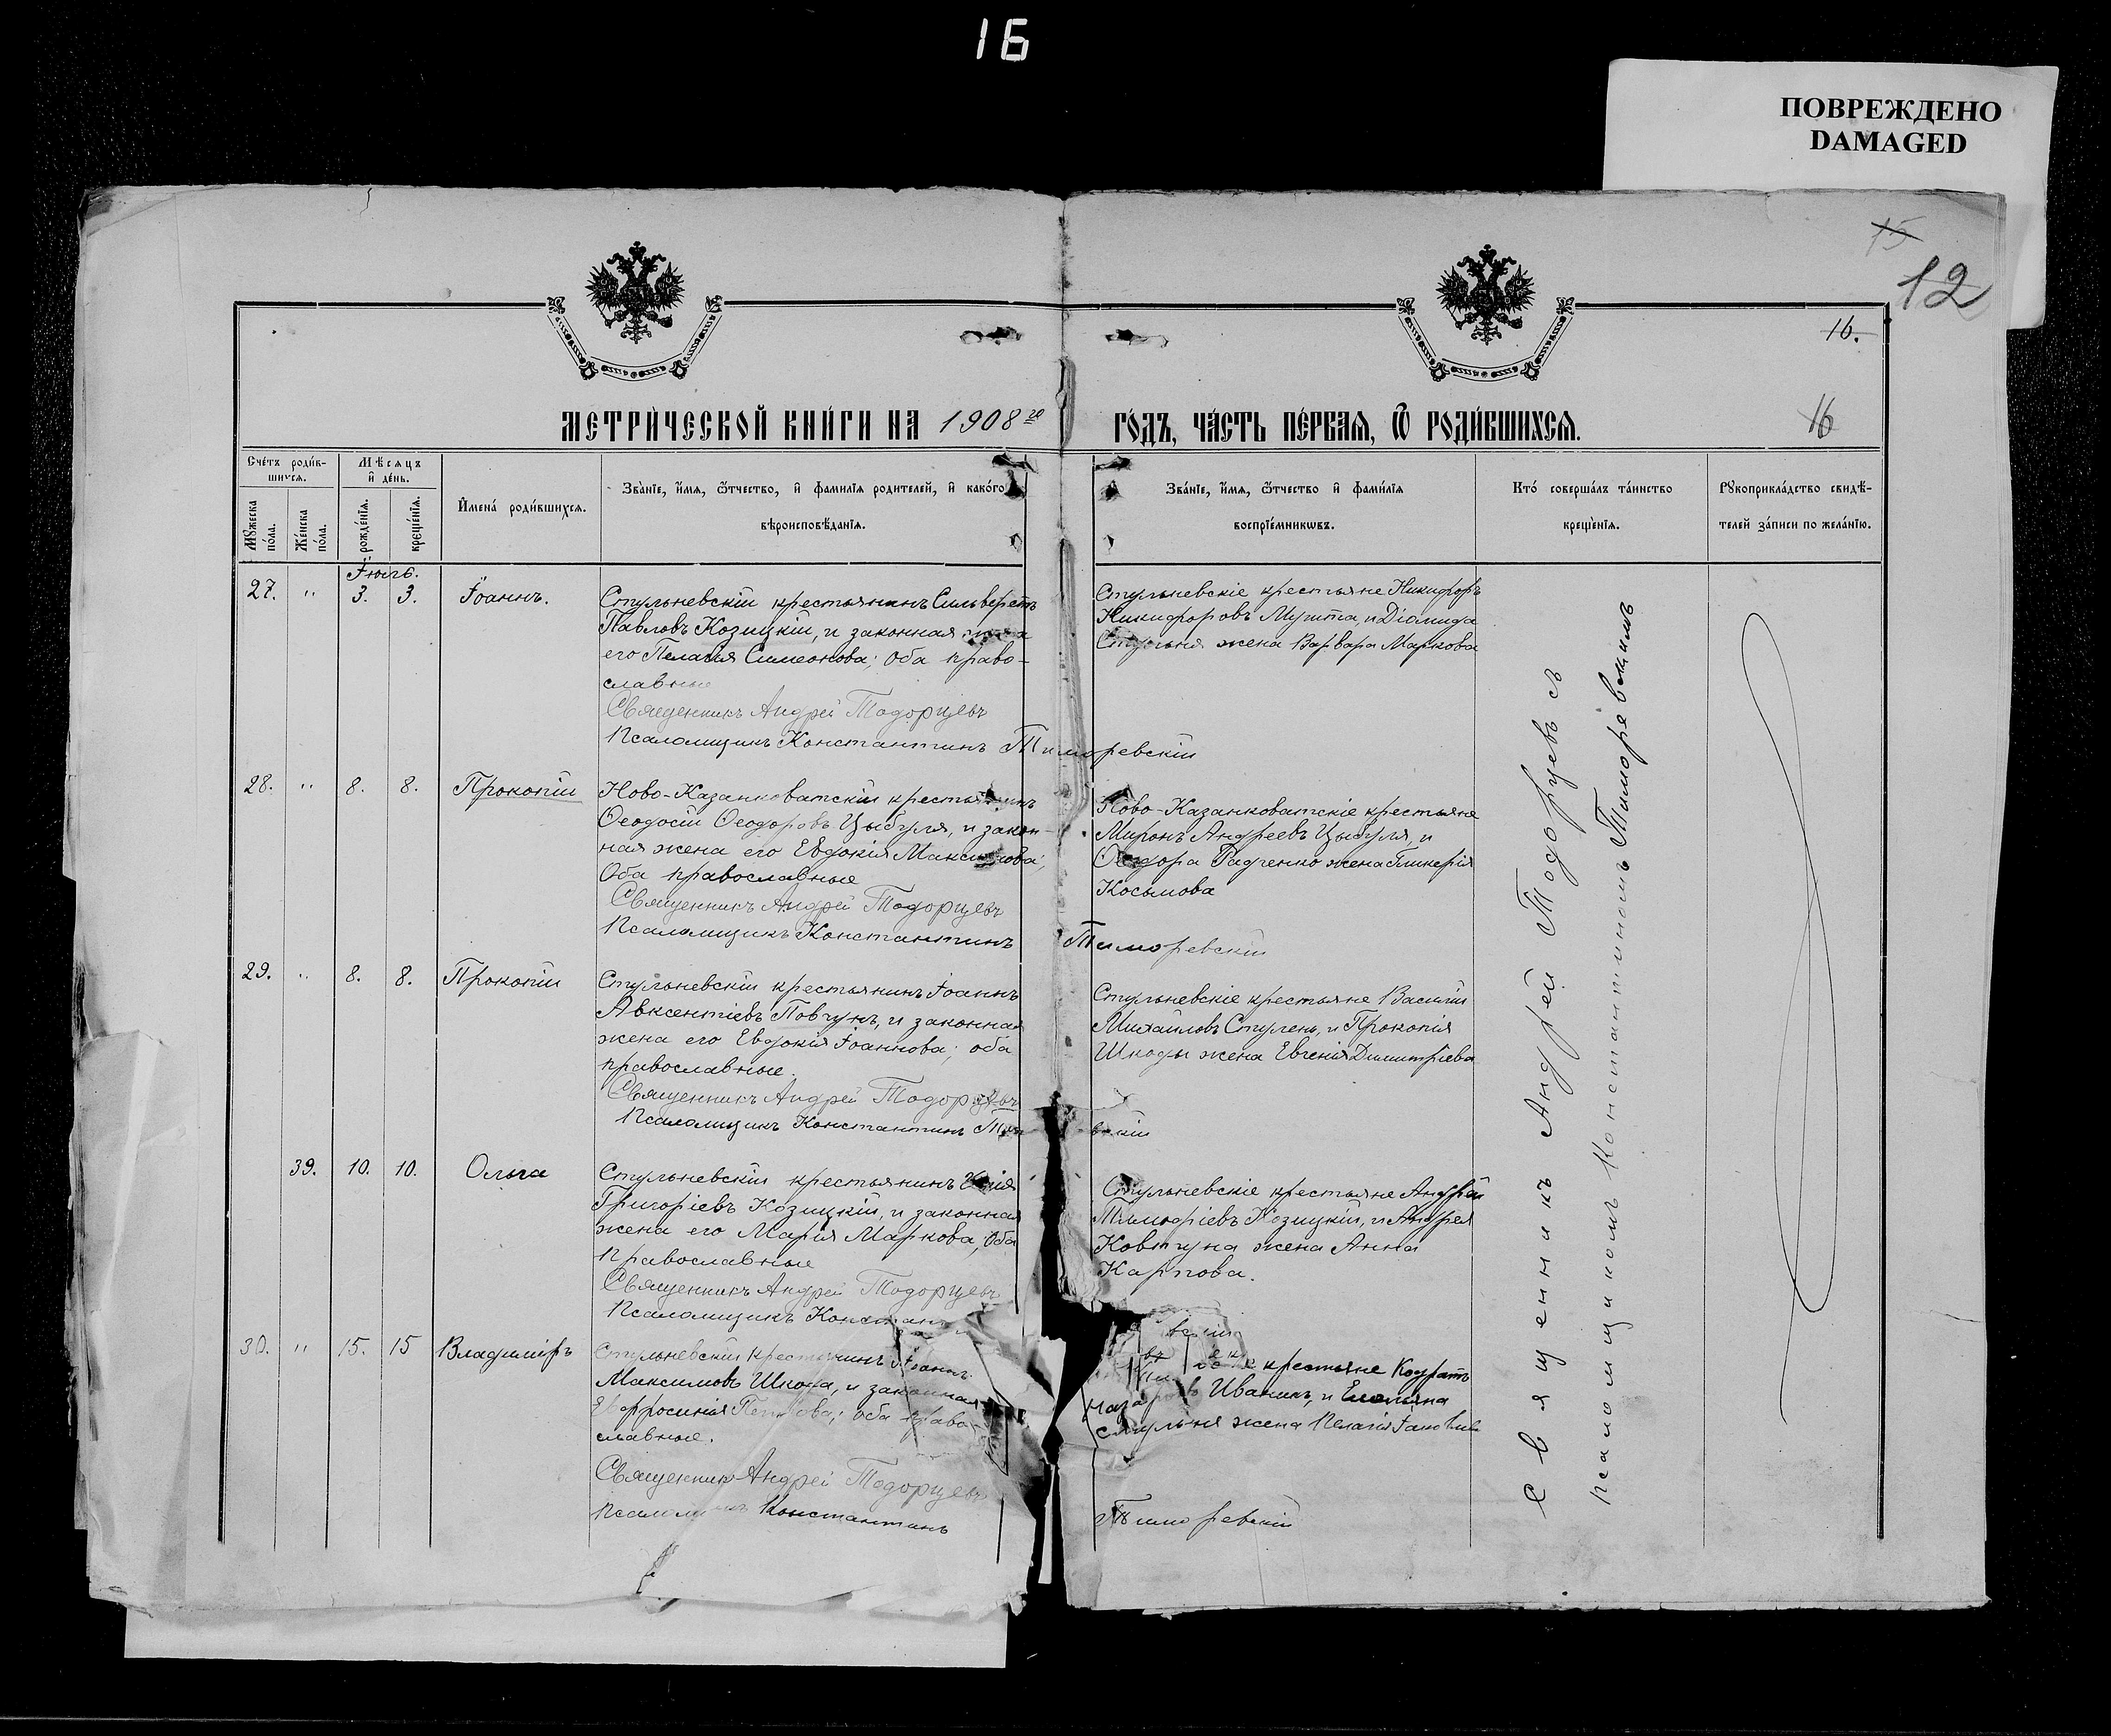 16
ПОВРЕЖДЕНО
DAMAGED
15
12
16.
16
МЕТРИ́ЧЕСКОЙ КНИ́ГИ НА 1908 го ГО́ДЪ, ЧА́СТЬ ПЕ́РВАЯ, Ѿ РОДИ́ВШИХСЯ.
Сче́тъ роди́в-
шихся.
Мѣсяцъ
и҆ де́нь.
Мꙋжеска
по́ла.
Же́нска
по́ла.
рожде́нїя.
креще́нїя.
И҆мена́ роди́вшихся.
Зва́нїе, и҆́мя, ѻ҆́тчество, и҆ фами́лїя родителей, и҆ како́го
вѣроисповѣ́данїя.
Зва́нїе, и҆́мя, ѻ҆́тчество и҆ фами́лїя
воспрїе́мникѡвъ.
Кто́ соверша́лъ та́инство
креще́нїя.
Рꙋкоприкла́дство свидѣ́-
телей за́писи по жела́нїю.
Іюль.
27. " 3. 3. Іоаннъ.
Стульневскій крестьянинъ Сильверстъ
Павловъ Козицкій, и законная жена
его Пелагія Симеонова; оба право-
славные
Священникъ Андрей Тодорцевъ
Псаломщикъ Константинъ Тиморевскій
Стульневскіе крестьяне Никифоръ
Никифоровъ и Діомида
Стульня жена Варвара Маркова
28. " 8. 8. Прокопій
Ново-Казанковатскій крестьянинъ
Ѳеодосій Ѳеодоровъ Цыбуля, и закон-
ная жена его Евдокія Максимова;
Оба православные
Священникъ Андрей Тодорцевъ
Псаломщикъ Константинъ Тиморевскій
Ново-Казанковатскіе крестьяне
Миронъ Андреевъ Цыбуля, и
Ѳеодора Радченко жена Гликерія
Косьмова
29. " 8. 8. Прокопій
Стульневскій крестьянинъ Іоаннъ
Авксентіевъ Повчунъ, и законная
жена его Евдокія Іоаннова; оба
православные.
Священникъ Андрей Тодорцевъ
Псаломщикъ Константинъ вскій
Стульневскіе крестьяне Василій
Михайловъ Стулень, и Прокопія
Шкоды жена Евгенія Димитріева
39. 10. 10. Ольга
Стульневскій крестьянинъ
Григоріевъ Козицкій, и законная
жена его Марія Маркова, Оба
Православные
Священникъ Андрей Тодорцевъ
Псаломщикъ Констан
Стульневскіе крестьяне Андрей
Тимофіевъ Козицкій, и Андрея
Ковтуна жена Анна
Карпова.
30. " 15. 15 Владиміръ
Стульневскій крестьянинъ Іоаннъ
Максимовъ Шкода, и законная
Евфросинія Петрова; оба право-
славные.
Священникъ Андрей Тодорцевъ
Константинъ Тиморевскій
крестьяне Кодратъ
Назаровъ Иваникъ, и Емельяна
Стульня жена Пелагія
Священникъ Андрей Тодорцевъ съ
псаломщикомъ Константиномъ Тиморевскимъ